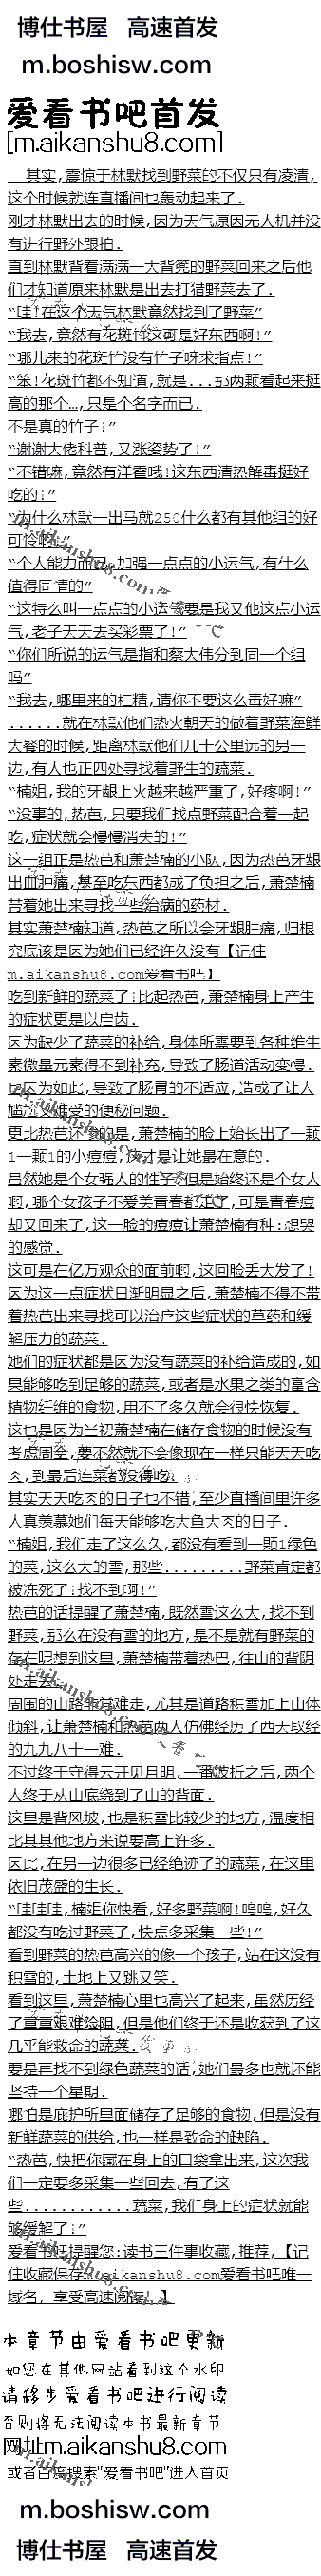 博仕书屋 高速首发
m.boshisw.com
爱看书吧首发
[m.aikanshu8.com]
其实,震惊于林默找到野菜的不仅只有凌清,
这个时候就连直播间也轰动起来了.
刚才林默出去的时候,因为天气原因无人机并没
有进行野外跟拍.
直到林默背着满满一大背篼的野菜回来之后他
们才知道原来林默是出去打猎野菜去了.
“哇!在这个天气林默竟然找到了野菜”
“我去,竟然有花斑竹这可是好东西啊!”
“哪儿来的花斑竹没有竹子呀求指点!”
“笨!花斑竹都不知道,就是...那两颗看起来挺
高的那个…,只是个名字而已.
不是真的竹子!”
“谢谢大佬科普,又涨姿势了!”
“不错嘛,竟然有洋藿哦!这东西清热解毒挺好
吃的!”
“为什么林默一出马就250什么都有其他组的好
可怜
“个人能力而已,加强一点点的小运气,有什么
值得同情的”
“这特么叫一点点的小运气要是我又他这点小运
气,老子天天去买彩票了!”
“你们所说的运气是指和蔡大伟分到同一个组
吗”
“我去,哪里来的杠精,请你不要这么毒好嘛”
......就在林默他们热火朝天的做着野菜海鲜
大餐的时候,距离林默他们几十公里远的另一
边,有人也正四处寻找着野生的蔬菜.
“楠姐,我的牙龈上火越来越严重了,好疼啊!”
“没事的,热芭,只要我们找点野菜配合着一起
吃,症状就会慢慢消失的!”
这一组正是热芭和萧楚楠的小队,因为热芭牙龈
出血肿痛,甚至吃东西都成了负担之后,萧楚楠
带着她出来寻找一些治病的药材.
其实萧楚楠知道,热芭之所以会牙龈肿痛,归根
究底该是因为她们已经许久没有【记住
m.aikanshu8.com爱看书吧】
吃到新鲜的蔬菜了!比起热芭,萧楚楠身上产生
的症状更是以启齿.
因为缺少了蔬菜的补给,身体所需要到各种维生
素微量元素得不到补充,导致了肠道活动变慢.
也因为如此,导致了肠胃的不适应,造成了让人
尴尬又难受的便秘问题.
更比热芭还惨的是,萧楚楠的脸上始长出了一颗
1一颗1的小痘痘,这才是让她最在意的.
虽然她是个女强人的性子但是始终还是个女人
啊,哪个女孩子不爱美青春都走了,可是青春痘
却又回来了,这一脸的痘痘让萧楚楠有种:想哭
的感觉.
这可是在亿万观众的面前啊,这回脸丢大发了!
因为这一点症状日渐明显之后,萧楚楠不得不带
着热芭出来寻找可以治疗这些症状的草药和缓
解压力的蔬菜.
她们的症状都是因为没有蔬菜的补给造成的,如
果能够吃到足够的蔬菜,或者是水果之类的富含
植物纤维的食物,用不了多久就会很快恢复.
这也是因为当初萧楚楠在储存食物的时候没有
考虑周全,要不然就不会像现在一样只能天天吃
肉,到最后连菜都没得吃.
其实天天吃肉的日子也不错,至少直播间里许多
人真羡慕她们每天能够吃大鱼大肉的日子.
“楠姐,我们走了这么久,都没有看到一颗1绿色
的菜,这么大的雪,那些.........野菜肯定都
被冻死了!找不到啊!”
热芭的话提醒了萧楚楠,既然雪这么大,找不到
野菜,那么在没有雪的地方,是不是就有野菜的
存在呢想到这里,萧楚楠带着热巴,往山的背阴
处走去.
周围的山路非常难走,尤其是道路积雪加上山体
倾斜,让萧楚楠和热芭两人仿佛经历了西天取经
的九九八十一难.
不过终于守得云开见月明,一番波折之后,两个
人终于从山底绕到了山的背面.
这里是背风坡,也是积雪比较少的地方,温度相
比其其他地方来说要高上许多.
因此,在另一边很多已经绝迹了的蔬菜,在这里
依旧茂盛的生长.
“哇哇哇,楠姐你快看,好多野菜啊!呜呜,好久
都没有吃过野菜了,快点多采集一些!”
看到野菜的热芭高兴的像一个孩子,站在这没有
积雪的,土地上又跳又笑.
看到这里,萧楚楠心里也高兴了起来,虽然历经
了重重艰难险阻,但是他们终于还是收获到了这
几乎能救命的蔬菜.
要是再找不到绿色蔬菜的话,她们最多也就还能
坚持一个星期.
哪怕是庇护所里面储存了足够的食物,但是没有
新鲜蔬菜的供给,也一样是致命的缺陷.
“热芭,快把你藏在身上的口袋拿出来,这次我
们一定要多采集一些回去,有了这
些............蔬菜,我们身上的症状就能
够缓解了!”
爱看书吧提醒您:读书三件事收藏,推荐,【记
住收藏保存m.aikanshu8.com爱看书吧唯一
域名, 享受高速阅读! 】
本章节由爱看书吧更新
如您在其他网站看到这个水印
请移步爱看书吧进行阅读
否则将无法阅读本书最新章节
网址m.aikanshu8.com
或者百度搜索"爱看书吧"进入首页
m.boshisw.com
博仕书屋 高速首发